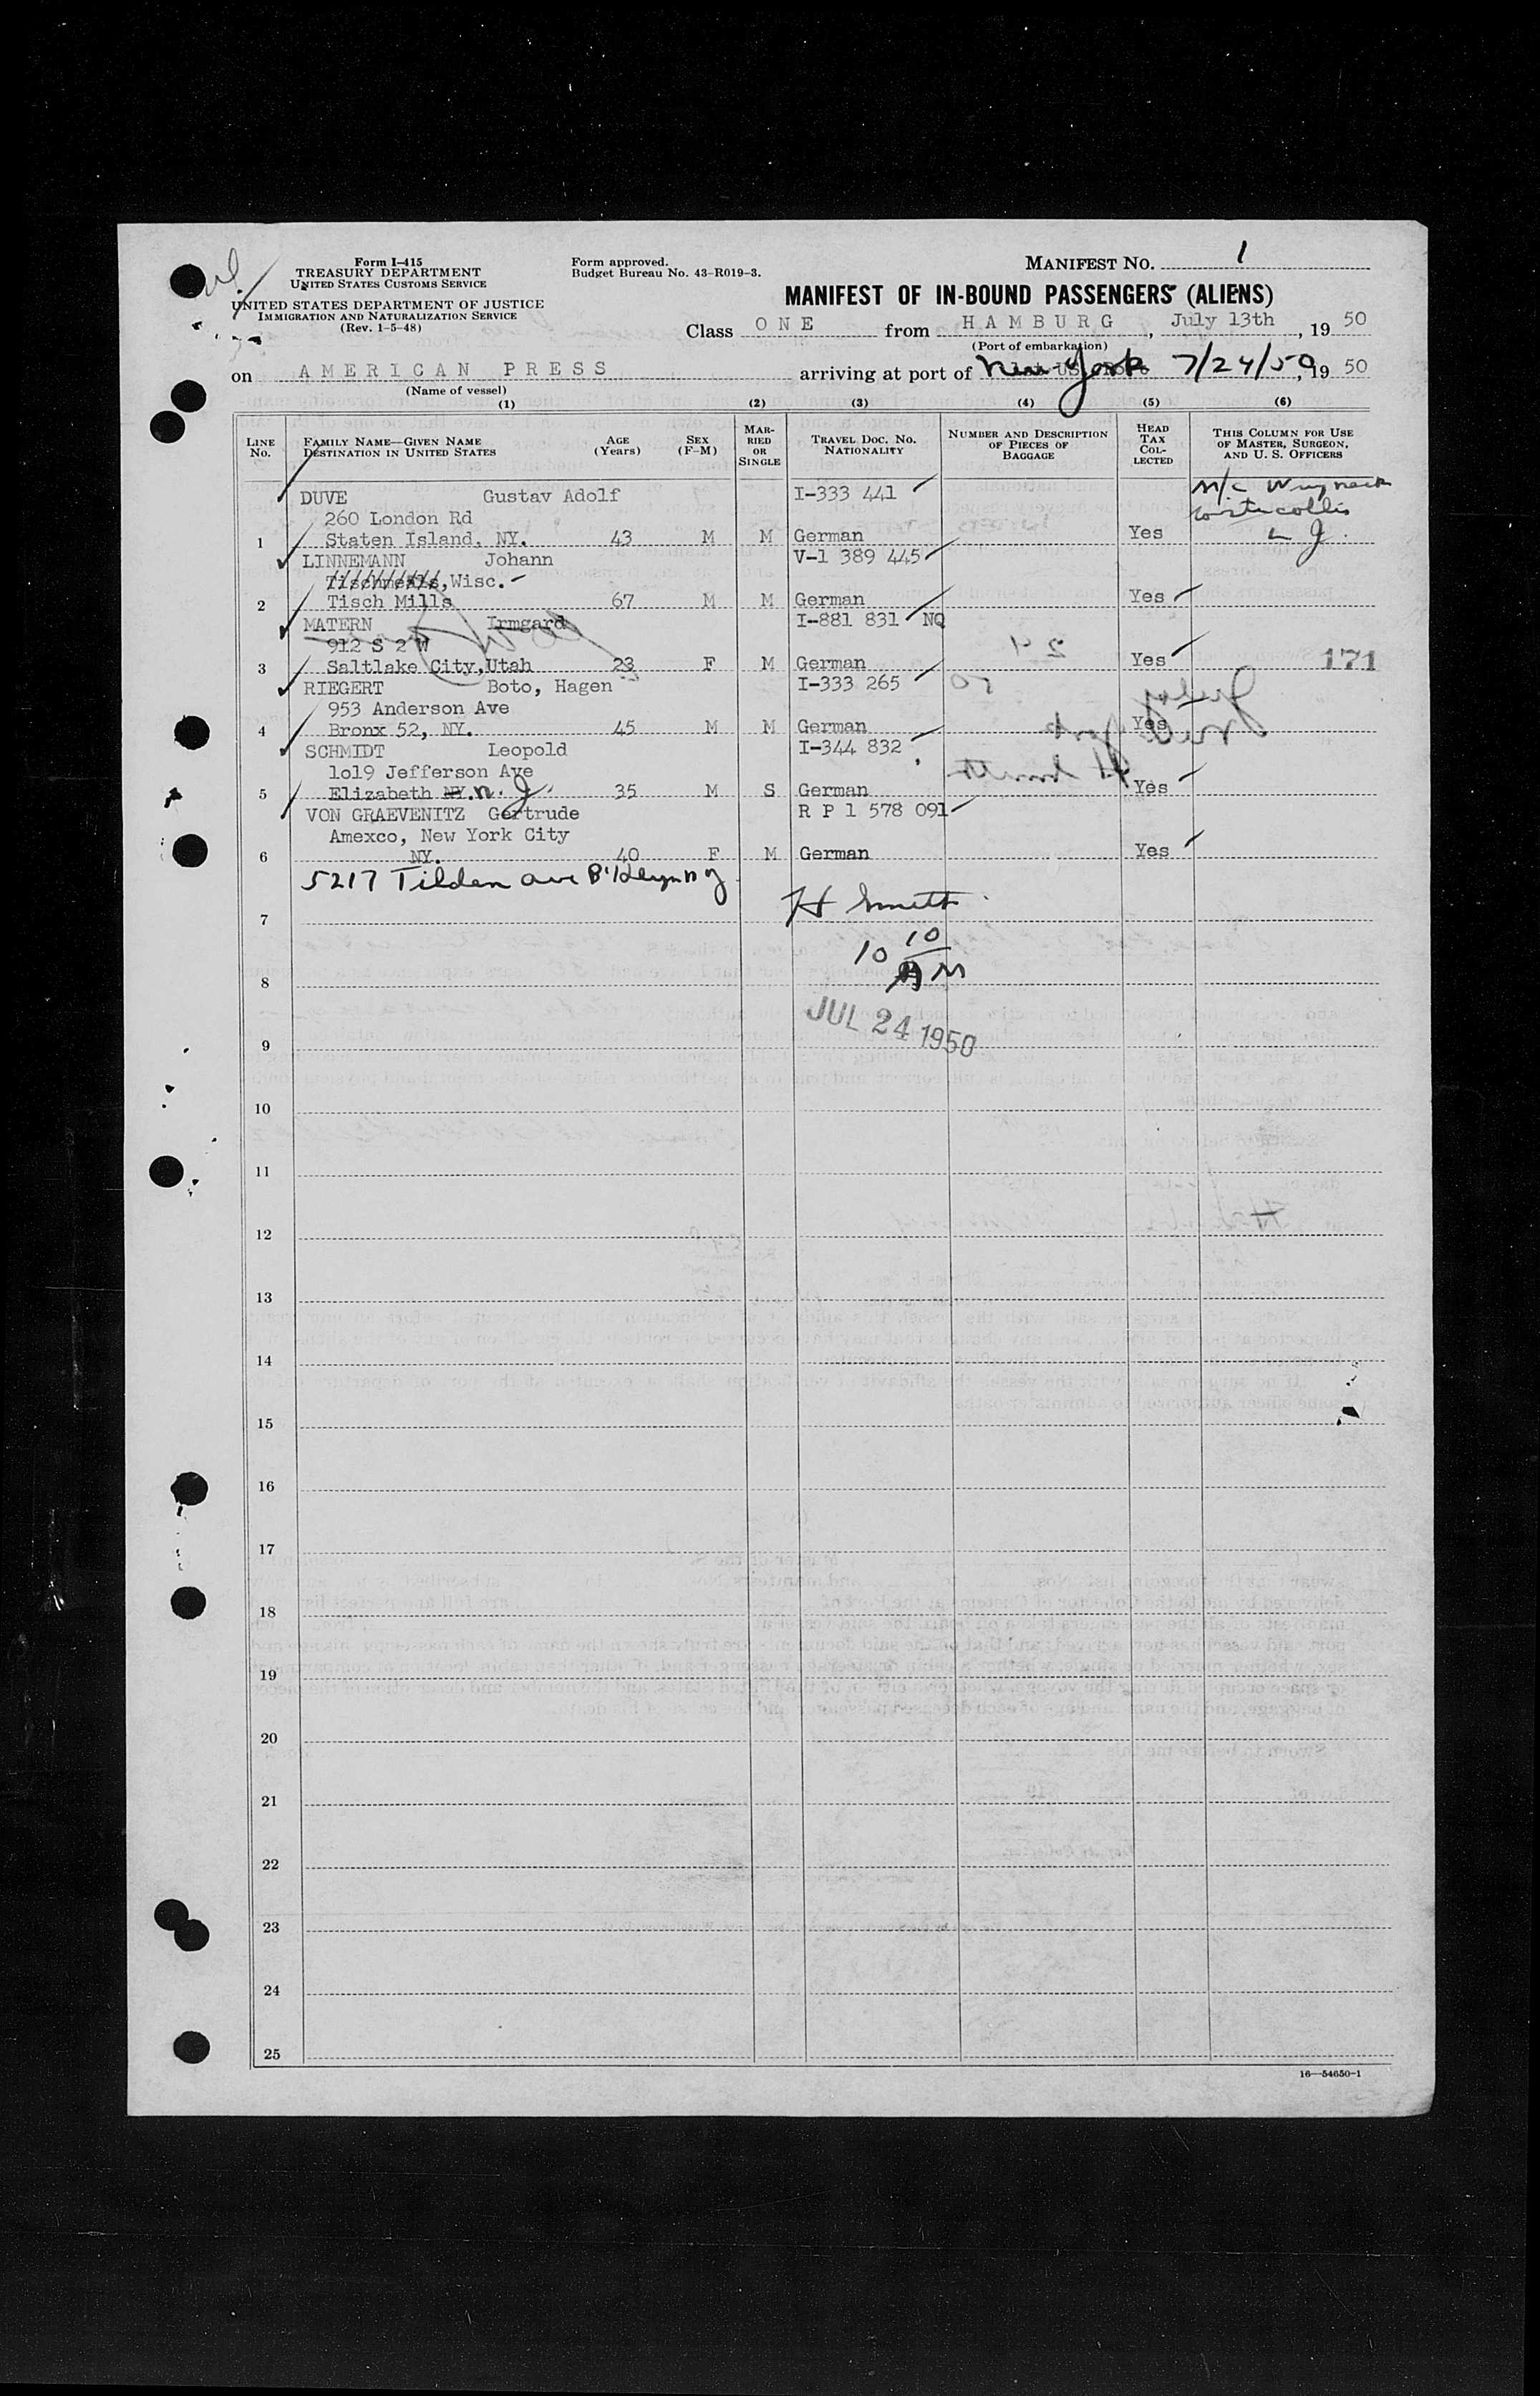 Form I-415
TREASURY DEPARTMENT
UNITED STATES CUSTOMS SERVICE
UNITED STATES DEPARTMENT OF JUSTICE
IMMIGRATION AND NATURALIZATION SERVICE
(Rev. 1-5-48)
Form approved.
Budget Bureau No. 43-R019-3.
MANIFEST NO. 1
MANIFEST OF IN-BOUND PASSENGERS (ALIENS)
Class ONE from HAMBURG, July 13th, 19 50
(Port of embarkation)
on AMERICAN PRESS arriving at port of New York 7/24/50, 19 50
(Name of vessel)
(1) (2) (3) (4) (5) (6)
LINE No. FAMILY NAME—GIVEN NAME DESTINATION IN UNITED STATES AGE (Years) SEX (F-M) MARRIED OR SINGLE TRAVEL DOC. NO. NATIONALITY NUMBER AND DESCRIPTION OF PIECES OF BAGGAGE HEAD TAX COLLECTED THIS COLUMN FOR USE OF MASTER, SURGEON, AND U. S. OFFICERS
DUVE Gustav Adolf I-333 441 M/c Wryneck
260 London Rd
1 Staten Island, NY. 43 M M German Yes
LINNEMANN Johann V-1 389 445
Tischmills, Wisc.
2 Tisch Mills 67 M M German Yes
MATERN Irmgard I-881 831 NQ
912 S 2 W
3 Saltlake City,Utah 23 F M German Yes 171
RIEGERT Boto, Hagen I-333 265
953 Anderson Ave
4 Bronx 52, NY. 45 M M German Yes
SCHMIDT Leopold I-344 832
1o19 Jefferson Ave
5 Elizabeth NY. n.J. 35 M S German Yes
VON GRAEVENITZ Gertrude R P 1 578 091
Amexco, New York City
6 NY. 40 F M German Yes
5217 Tilden ave B'klyn n y
7 H Smith
10 10
8 AM
JUL 24 1950
9
10
11
12
13
14
15
16
17
18
19
20
21
22
23
24
25
16—54650-1